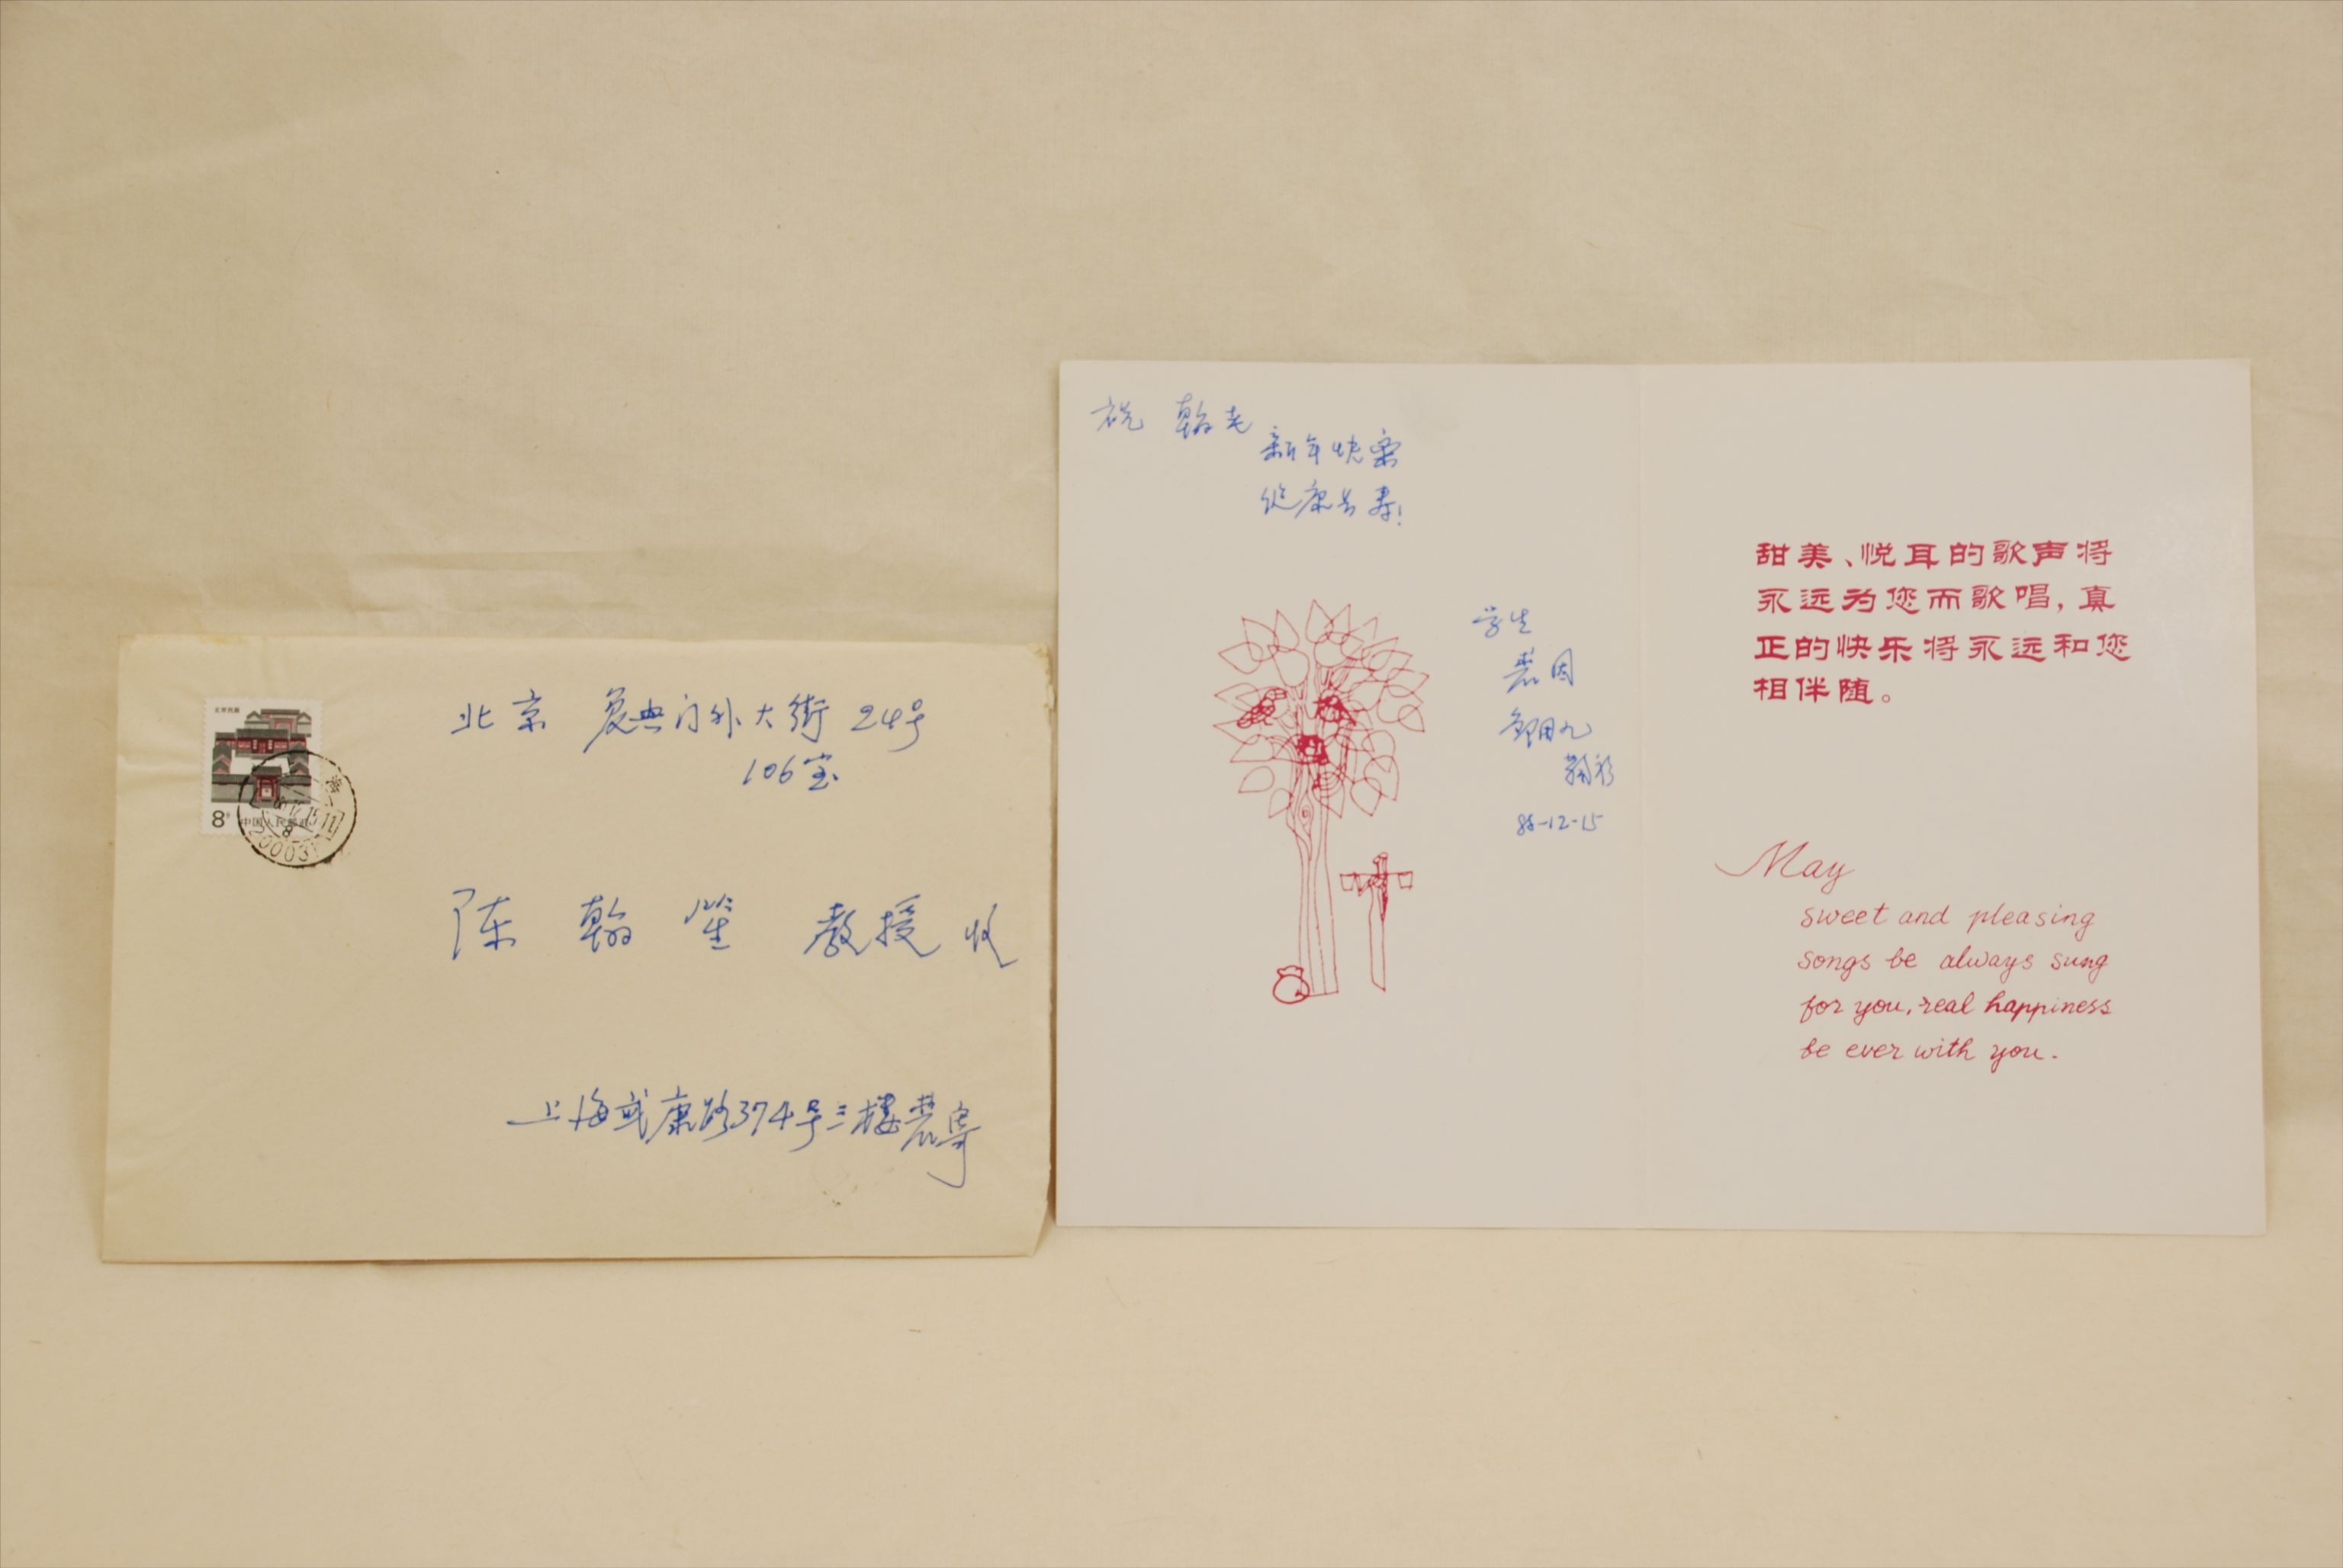 北京民居
8分 中国人民邮政
200031
北京 复兴门外大街 24号
106室
陈 翰笙 教授 收
上海武康路374号三楼裘寄
祝 翰老
新年快乐
健康长寿!
学生
裘因
邹用九
鞠躬
甜美、悦耳的歌声将
永远为您而歌唱,真
正的快乐将永远和您
相伴随。
May
sweet and pleasing
songs be always sung
for you, real happiness
be ever with you.